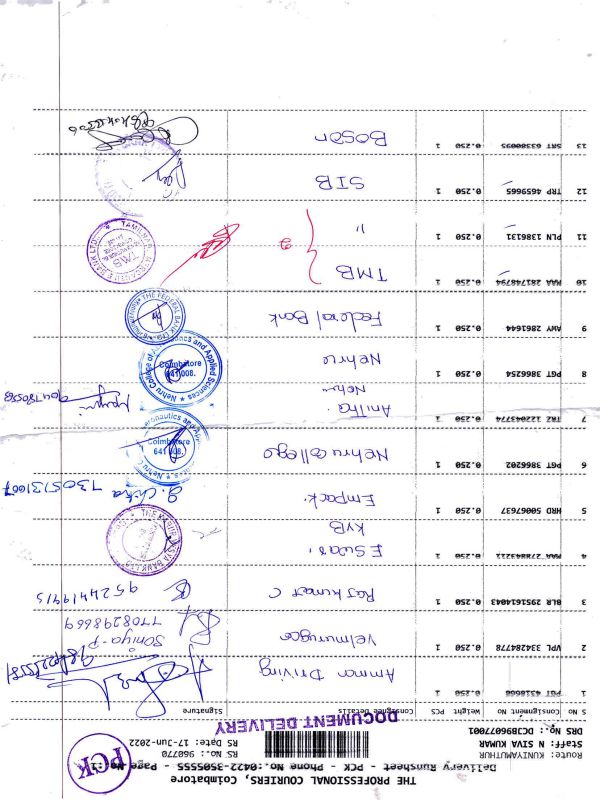 THE PROFESSIONAL COURIERS, Coimbatore
Delivery Runsheet - PCK - Phone No.:0422-3505555 - Page No.:1
Route: KUNIYAMUTHUR
Staff: N SIVA KUMAR
DRS No.: DCJB96077001
RS No.: 960770
RS Date: 17-Jun-2022
PCK
DOCUMENT DELIVERY
S No Consignment No Weight PCS Consignee Details Signature
1 PGT 0.250 1 Amman Driving
2 VPL 334284778 0.250 1 Velmurugan Soniya-P 7708298669
3 BLR 0.250 1 Rajkumar C 9524419415
4 MAA 0.250 1 Eswari KVB
5 HRD 50067637 0.250 1 Empark. 7305731007
6 PGT 3866202 0.250 1 Nehru College
Coimbatore 641 008.
7 TRZ 0.250 1 Anitha Nehru
8 PGT 3866254 0.250 1 Nehru
Nehru College of Aeronautics and Applied Sciences
Coimbatore 641 008.
9 AWY 2861644 0.250 1 Federal Bank
THE FEDERAL BANK LTD
10 MAA 281748794 0.250 1 TMB
TAMILNAD MERCANTILE BANK LTD
TMB
11 PLN 1386131 0.250 1 "
2
12 TRP 4659665 0.250 1 SIB
13 SRT 0.250 1